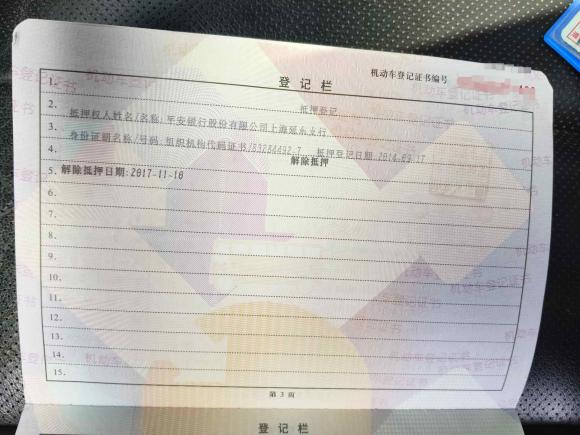 机动车登记证书编号
登记栏
1.
抵押登记
2.
抵押权人姓名/名称:平安银行股份有限公司上海延东支行
3.
身份证明名称/号码:组织机构代码证书/83284492-7 抵押登记日期:2014-03-17
4.
解除抵押
5.
解除抵押日期:2017-11-16
6.
7.
8.
9.
10.
11.
12.
13.
14.
15.
第 3 页
登记栏